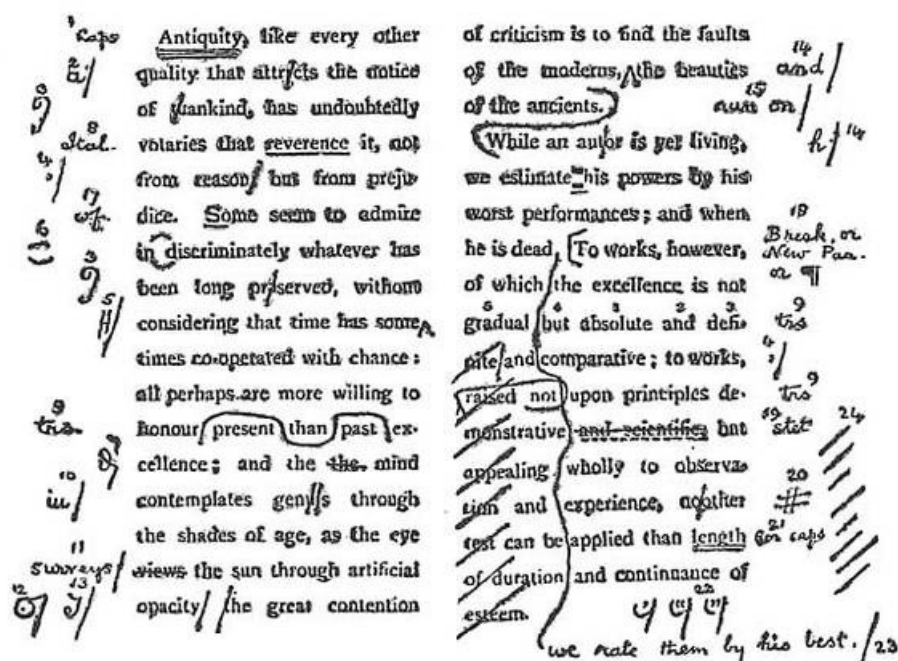 1 Caps
2 a/
8 Ital.
4 ;/
17 wf.
6
3
5 H/
9 trs.
9
10 iu/
11 surveys/
12 13
Antiquity, like every other
quality that attrcts the notice
of mankind, has undoubtedly
votaries that reverence it, not
from reason but from preju-
dice. Some seem to admire
in discriminately whatever has
been long preserved, without
considering that time has some
times co-operated with chance:
all perhaps are more willing to
honour present than past ex-
cellence; and the the mind
contemplates through
the shades of age, as the eye
views the sun through artificial
opacity the great contention
of criticism is to find the faults
of the moderns, the beauties
of the ancients.
While an autor is yet living,
we estimate his powers by his
worst performances; and when
he is dead, To works, however,
of which the excellence is not
gradual but absolute and defi-
nite and comparative; to works,
raised not upon principles de-
monstrative and scientific, but
appealing wholly to observa-
tion and experience, noother
test can be applied than length
of duration and continuance of
esteem.
14 and/
15 run on/
h/ 16
18
Break, or
New Par.
or ¶
5 4 1 2 3
9 trs
4 ;/
9 trs
19 stet
24
20 #
21 or caps
22
we rate them by his best./23